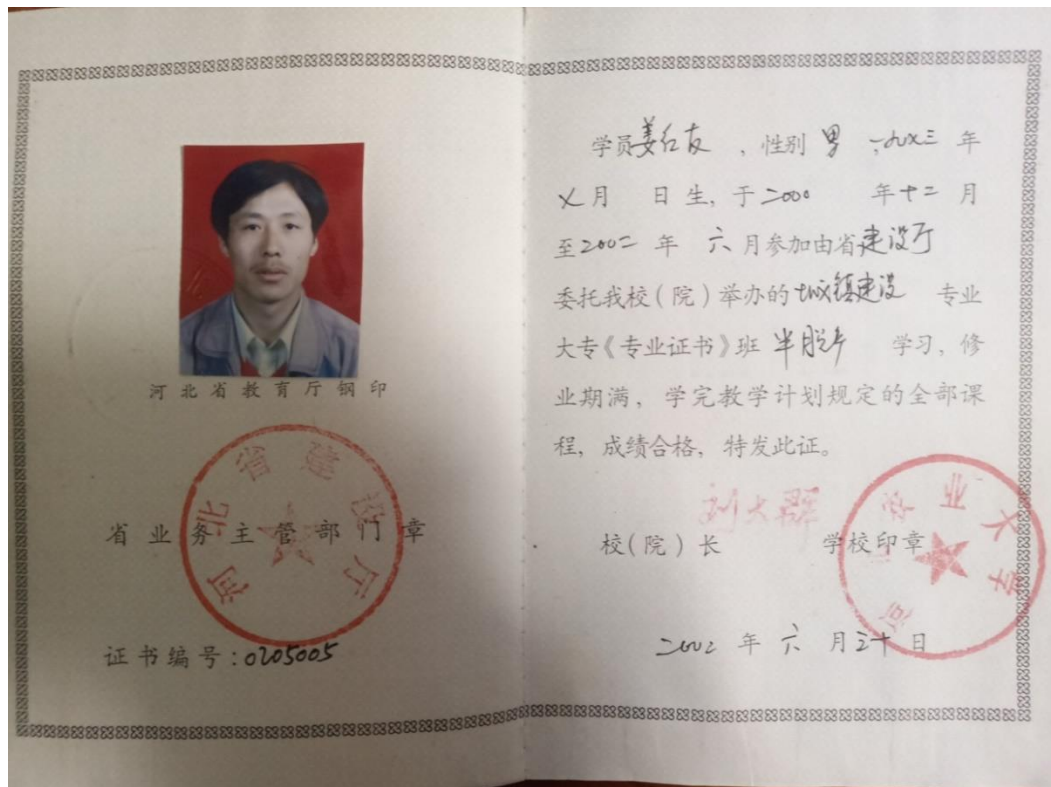 河北省教育厅钢印
河北省建设厅
省业务主管部门章
证书编号：0205005
学员姜红友，性别 男 一九七三 年
七月 日生，于二000 年十二月
至2002 年 六月参加由省建设厅
委托我校（院）举办的城镇建设 专业
大专《专业证书》班 半脱产 学习，修
业期满，学完教学计划规定的全部课
程，成绩合格，特发此证。
刘大群
校（院）长 学校印章
农业大学
二002 年 六 月三十日